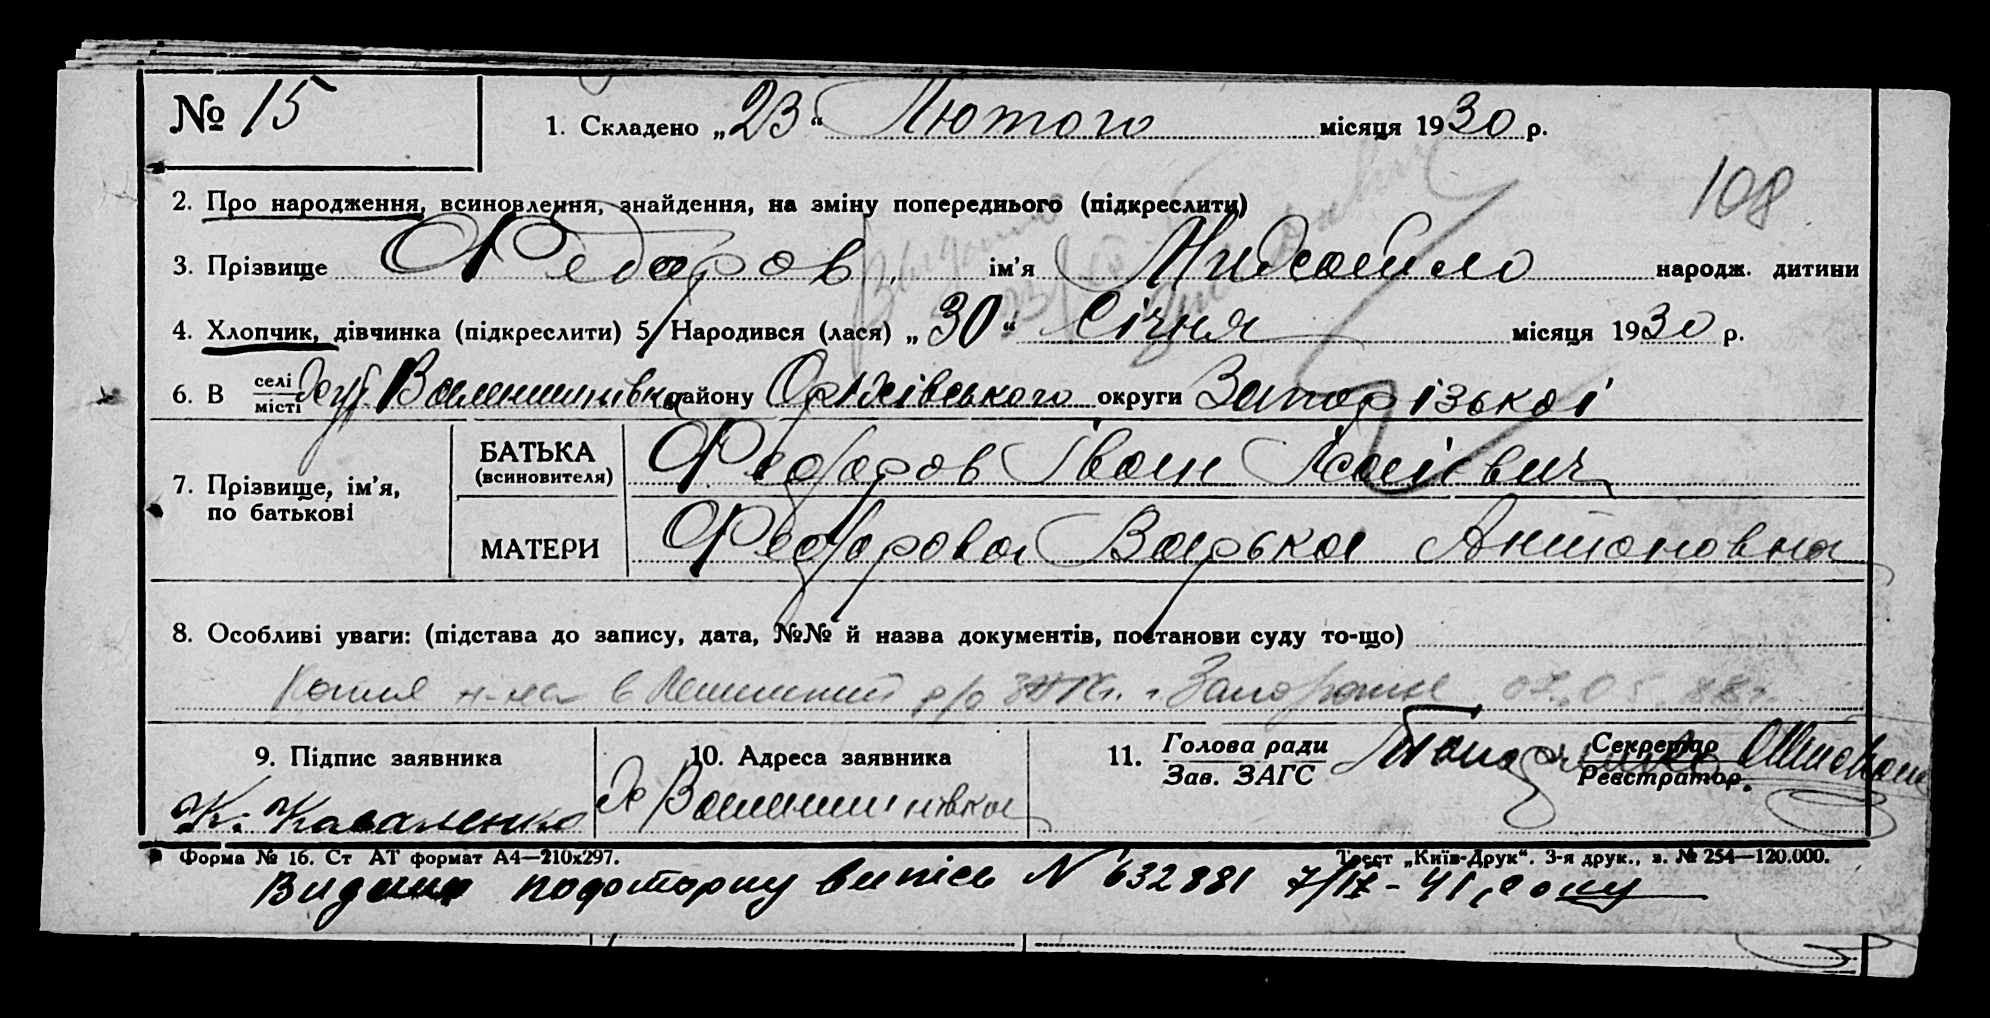 № 15
1. Складено „23“ Лютого місяця 1930 р.
108
2. Про народження, всиновлення, знайдення, на зміну попереднього (підкреслити)
3. Прізвище Федоров ім’я Михайло народж. дитини
4. Хлопчик, дівчинка (підкреслити) 5. Народився (лася) „30“ Січня місяця 1930 р.
6. В селі місті Хут. Валентинівка району Оріхівського округи Запорізької
7. Прізвище, ім’я, по батькові
БАТЬКА (всиновителя) Федоров Іван
МАТЕРИ Федорова Варька Антоновна
8. Особливі уваги: (підстава до запису, дата, №№ й назва документів, постанови суду то-що)
Копия в Ленинский р/о ЗАГС г. Запорожье 07.05.88г.
9. Підпис заявника
К. Коваленко
10. Адреса заявника
Х Валентинівка
11. Голова ради Зав. ЗАГС
Секретар Реєстратор.
Форма № 16. Ст АТ формат А4—210х297.
Трест „Київ-Друк“. 3-я друк., з. № 254—120.000.
Видана повторну випісь N 632881 7/IX-41 року